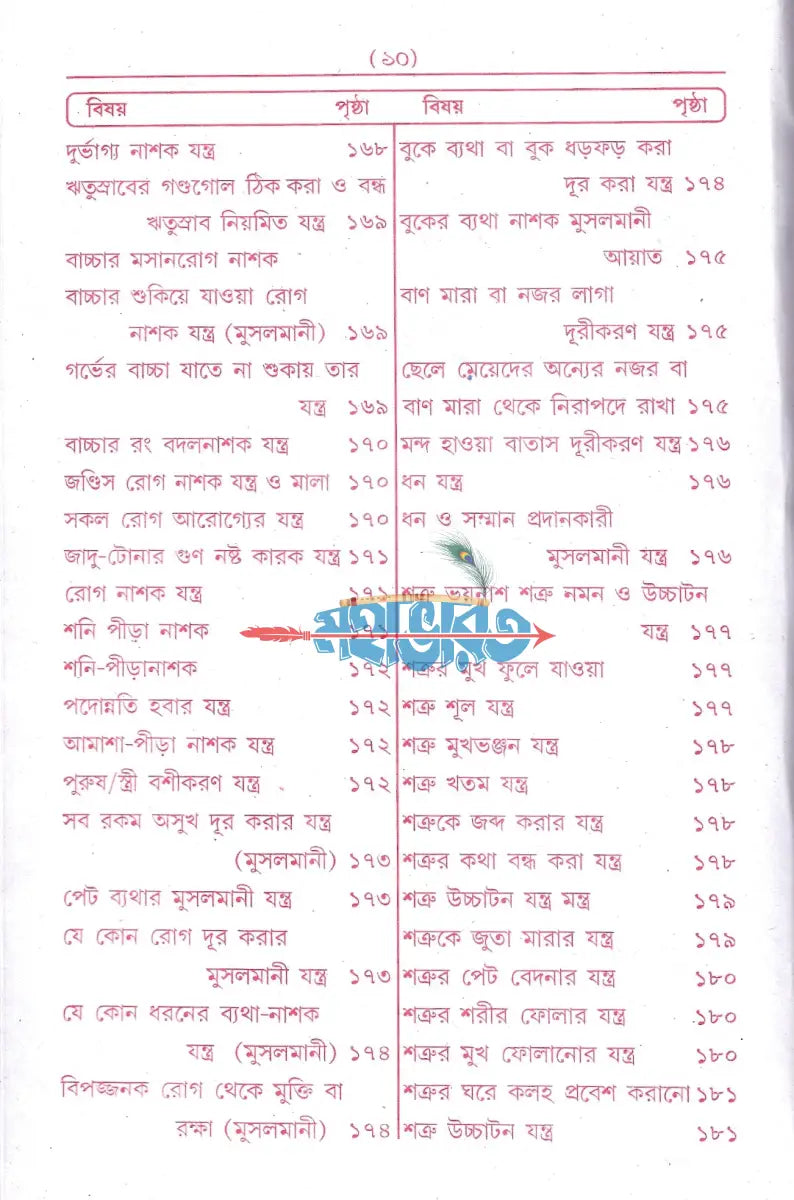 (১০)
বিষয় পৃষ্ঠা
দুর্ভাগ্য নাশক যন্ত্র ১৬৮
ঋতুস্রাবের গণ্ডগোল ঠিক করা ও বন্ধ
ঋতুস্রাব নিয়মিত যন্ত্র ১৬৯
বাচ্চার মসানরোগ নাশক
বাচ্চার শুকিয়ে যাওয়া রোগ
নাশক যন্ত্র (মুসলমানী) ১৬৯
গর্ভের বাচ্চা যাতে না শুকায় তার
যন্ত্র ১৬৯
বাচ্চার রং বদলনাশক যন্ত্র ১৭০
জণ্ডিস রোগ নাশক যন্ত্র ও মালা ১৭০
সকল রোগ আরোগ্যের যন্ত্র ১৭০
জাদু-টোনার গুণ নষ্ট কারক যন্ত্র ১৭১
রোগ নাশক যন্ত্র
শনি পীড়া নাশক
শনি-পীড়ানাশক ১৭২
পদোন্নতি হবার যন্ত্র ১৭২
আমাশা-পীড়া নাশক যন্ত্র ১৭২
পুরুষ/স্ত্রী বশীকরণ যন্ত্র ১৭২
সব রকম অসুখ দূর করার যন্ত্র
(মুসলমানী) ১৭৩
পেট ব্যথার মুসলমানী যন্ত্র ১৭৩
যে কোন রোগ দূর করার
মুসলমানী যন্ত্র ১৭৩
যে কোন ধরনের ব্যথা-নাশক
যন্ত্র (মুসলমানী) ১৭৪
বিপজ্জনক রোগ থেকে মুক্তি বা
রক্ষা (মুসলমানী) ১৭৪
বিষয় পৃষ্ঠা
বুকে ব্যথা বা বুক ধড়ফড় করা
দূর করা যন্ত্র ১৭৪
বুকের ব্যথা নাশক মুসলমানী
আয়াত ১৭৫
বাণ মারা বা নজর লাগা
দূরীকরণ যন্ত্র ১৭৫
ছেলে মেয়েদের অন্যের নজর বা
বাণ মারা থেকে নিরাপদে রাখা ১৭৫
মন্দ হাওয়া বাতাস দূরীকরণ যন্ত্র ১৭৬
ধন যন্ত্র ১৭৬
ধন ও সম্মান প্রদানকারী
মুসলমানী যন্ত্র ১৭৬
শত্রু ভয়নাশ শত্রু নমন ও উচ্চাটন
যন্ত্র ১৭৭
শত্রুর মুখ ফুলে যাওয়া ১৭৭
শত্রু শূল যন্ত্র ১৭৭
শত্রু মুখভঞ্জন যন্ত্র ১৭৮
শত্রু খতম যন্ত্র ১৭৮
শত্রুকে জব্দ করার যন্ত্র ১৭৮
শত্রুর কথা বন্ধ করা যন্ত্র ১৭৮
শত্রু উচ্চাটন যন্ত্র মন্ত্র ১৭৯
শত্রুকে জুতা মারার যন্ত্র ১৭৯
শত্রুর পেট বেদনার যন্ত্র ১৮০
শত্রুর শরীর ফোলার যন্ত্র ১৮০
শত্রুর মুখ ফোলানোর যন্ত্র ১৮০
শত্রুর ঘরে কলহ প্রবেশ করানো ১৮১
শত্রু উচ্চাটন যন্ত্র ১৮১
মহাভারত